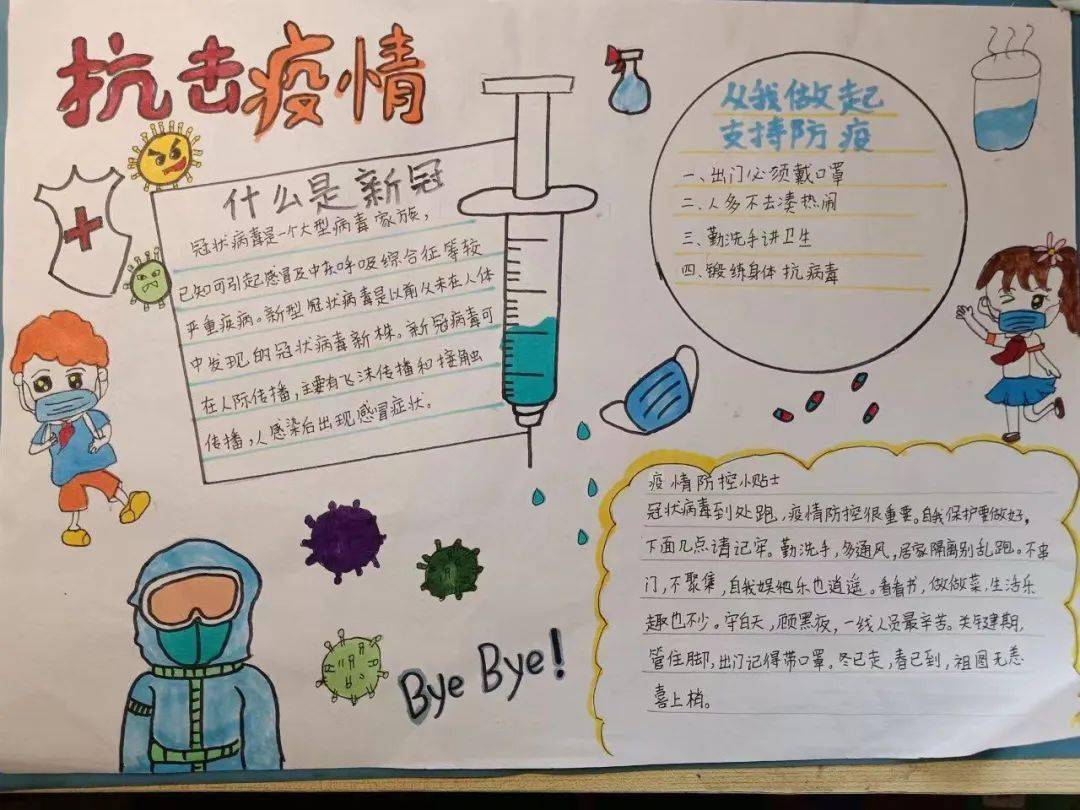 抗击疫情
什么是新冠
冠状病毒是一个大型病毒家族，
已知可引起感冒及中东呼吸综合征等较
严重疾病。新型冠状病毒是以前从未在人体
中发现的冠状病毒新株。新冠病毒可
在人际传播，主要有飞沫传播和接触
传播，人感染后出现感冒症状。
从我做起
支持防疫
一、出门必须戴口罩
二、人多不去凑热闹
三、勤洗手讲卫生
四、锻练身体抗病毒
疫情防控小贴士
冠状病毒到处跑，疫情防控很重要。自我保护要做好，
下面几点请记牢。勤洗手，多通风，居家隔离别乱跑。不串
门，不聚集，自我娱他乐也逍遥。看看书，做做菜，生活乐
趣也不少。守白天，顾黑夜，一线人员最辛苦。关键期，
管住脚，出门记得带口罩。冬已走，春已到，祖国无恙
喜上梢。
Bye Bye!